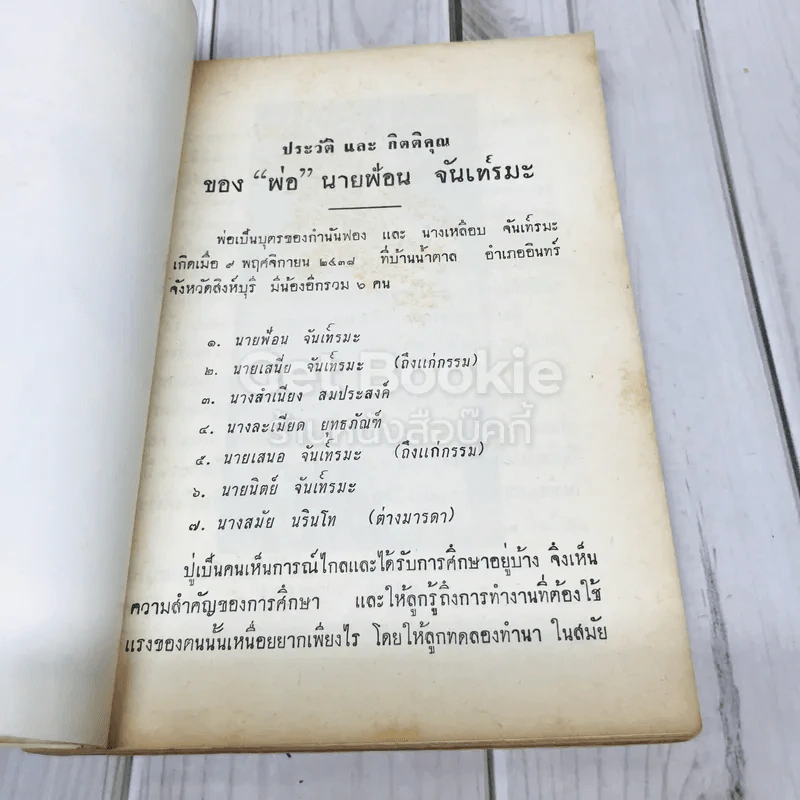 ประวัติ และ กิตติคุณ
ของ “พ่อ” นายฟ้อน จันเท์รมะ
พ่อเป็นบุตรของกำนันฟอง และ นางเหลือบ จันเท์รมะ
เกิดเมื่อ ๙ พฤศจิกายน ๒๔๓๘ ที่บ้านน้ำตาล อำเภออินทร์
จังหวัดสิงห์บุรี มีน้องอีกรวม ๖ คน
๑. นายฟ้อน จันเท์รมะ
๒. นายเสนีย จันเท์รมะ (ถึงแก่กรรม)
Get Bookie
๓. นางสำเนียง สมประสงค์
๔. นางละเมียด ยุทธภัณฑ์
ร้านหนังสือบุ๊คกี้
๕. นายเสนอ จันเท์รมะ (ถึงแก่กรรม)
๖. นายนิตย์ จันเท์รมะ
๗. นางสมัย นรินโท (ต่างมารดา)
ปู่เป็นคนเห็นการณ์ไกลและได้รับการศึกษาอยู่บ้าง จึงเห็น
ความสำคัญของการศึกษา และให้ลูกรู้ถึงการทำงานที่ต้องใช้
แรงของตนนั้นเหนื่อยยากเพียงไร โดยให้ลูกทดลองทำนา ในสมัย